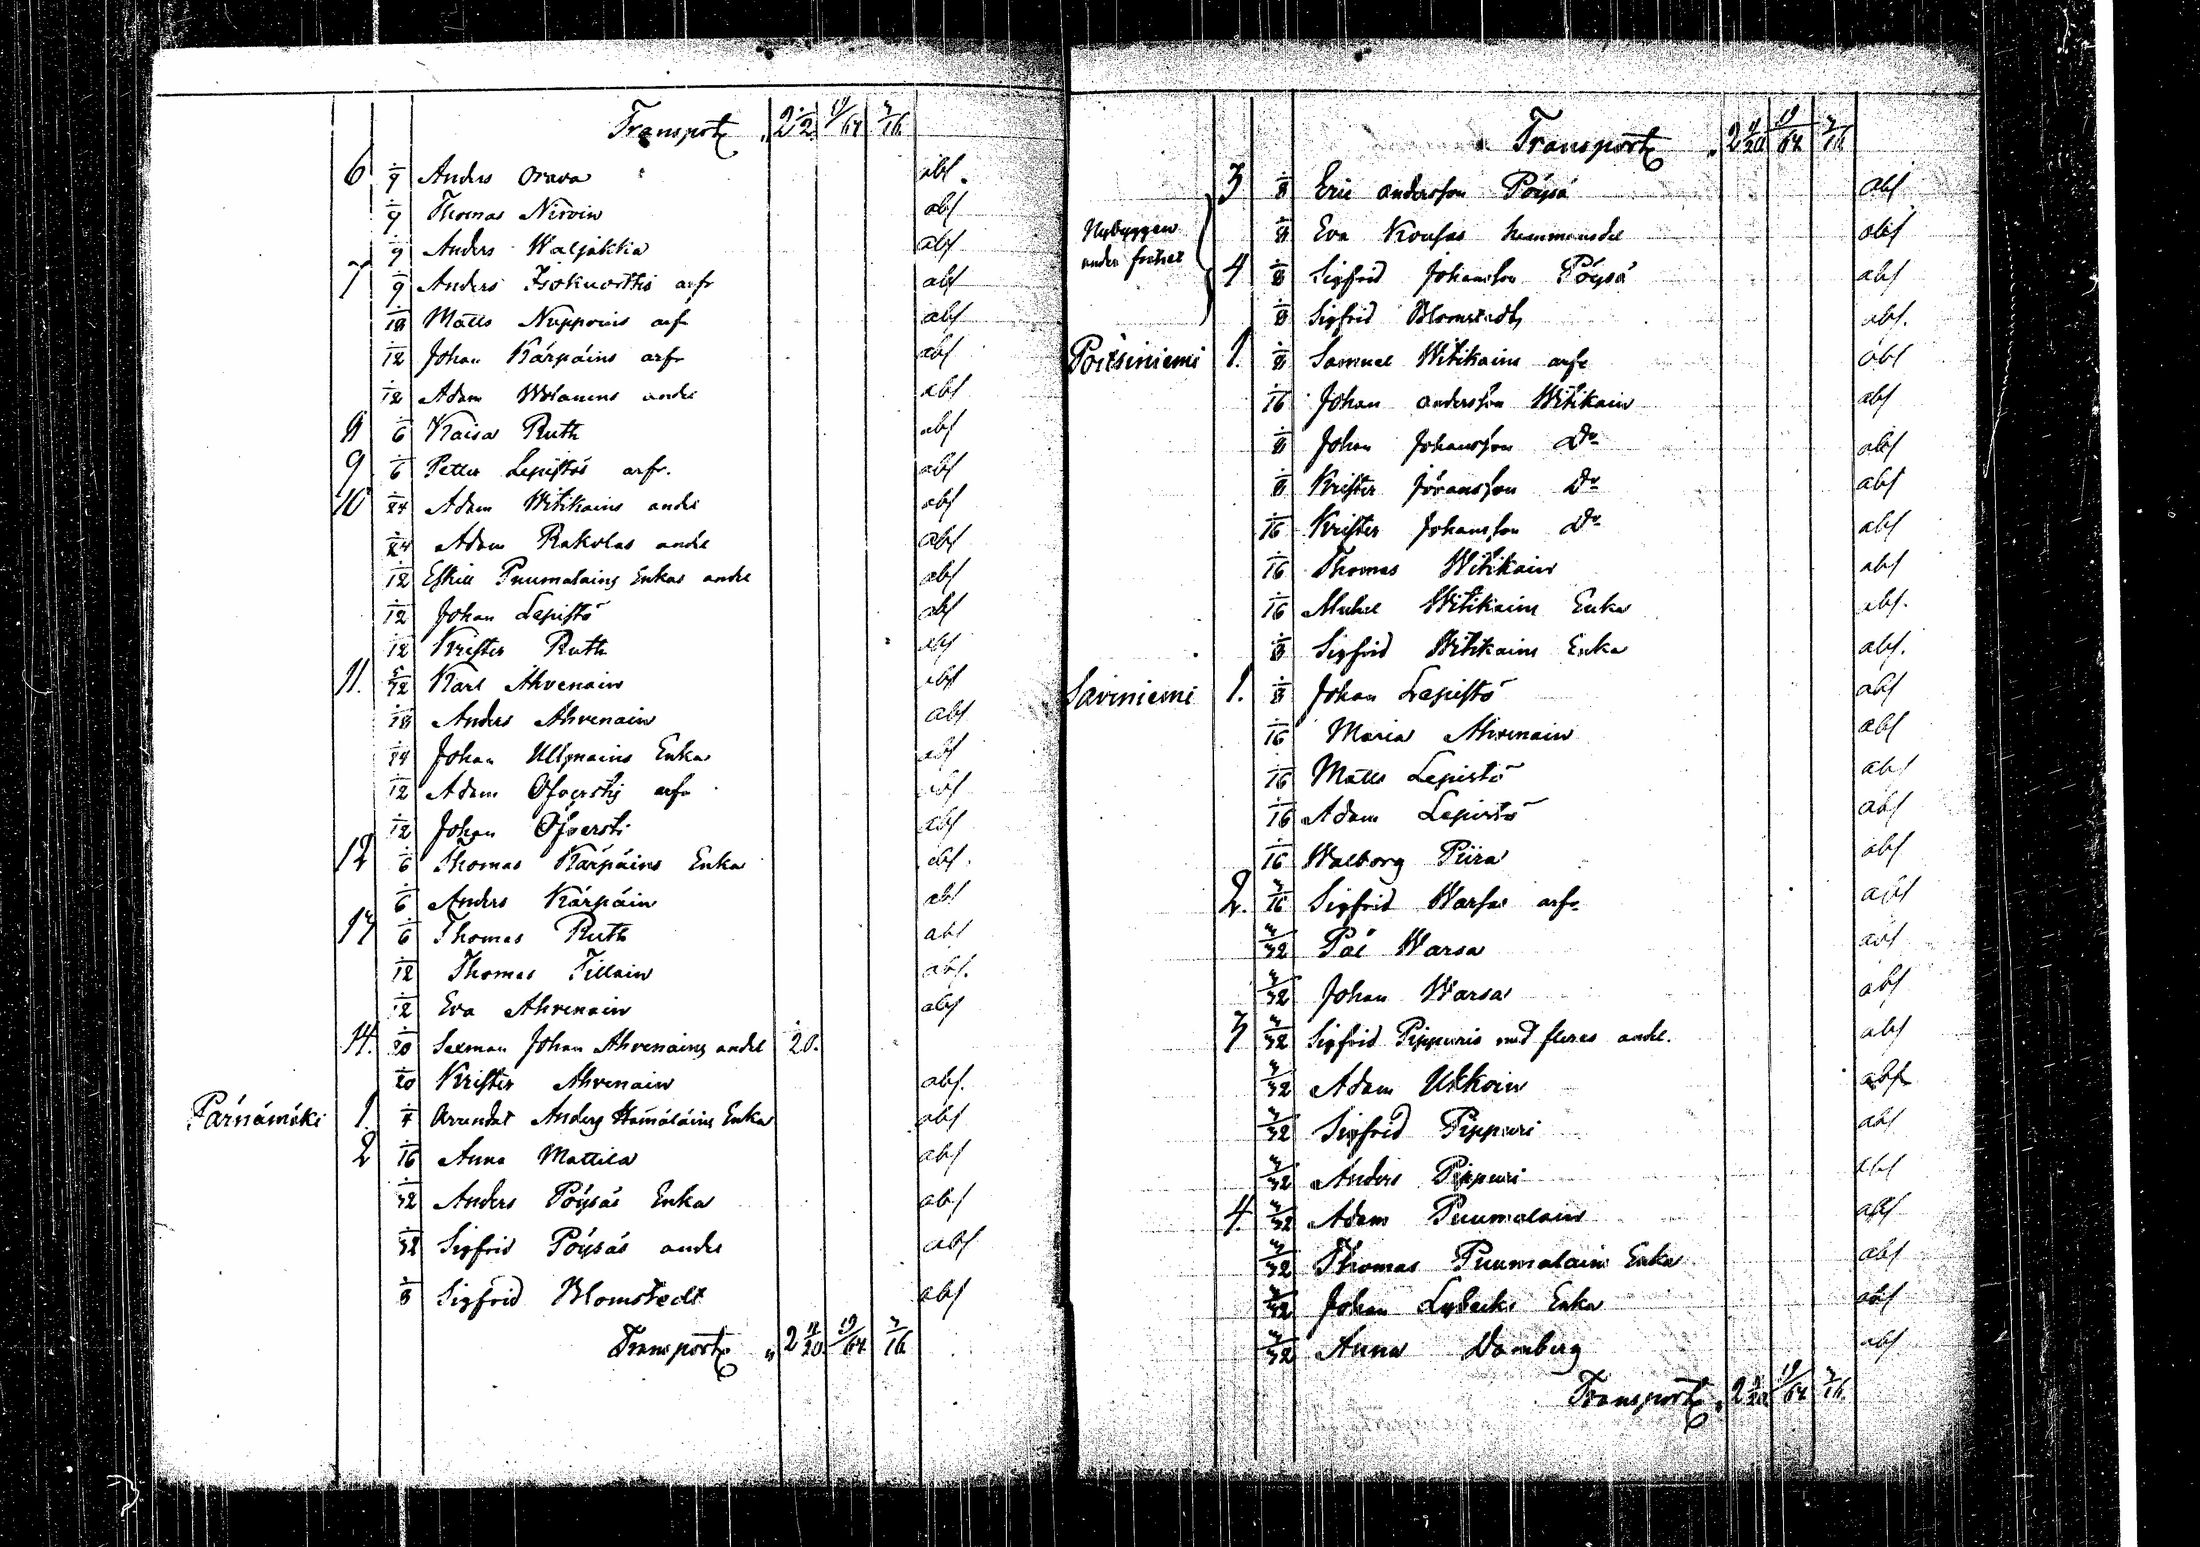 Transport " 2 1/2 19/64 3/16
6 1/9 Anders Orava abs.
1/9 Thomas Nirvin abs
1/9 Anders Waljakka abs
7 1/9 Anders Isokuorttis arfr abs
1/18 Matts Nuppoins arfr abs
1/12 Johan Kärpäins arfr abs
1/12 Adam andel abs
8 1/6 Kaisa Ruth abs
9 1/6 Petter Lepistös arfr. abs
10 1/24 Adam Witikains andel abs
1/24 Adam Rakolas andel abs
1/12 Eskill Puumalains Enkas andel abs
1/12 Johan Lepistö abs
1/12 Krister Ruth abs
11. 5/72 Karl Ahvenain abs
1/18 Anders Ahvenain abs
1/24 Johan Ullmains Enka abs
1/12 Adam Öfverstis arfr abs
1/12 Johan Öfversti abs
12 1/6 Thomas Kärpäins Enka abs.
1/6 Anders Kärpäin abs
13 1/6 Thomas Ruth abs
1/12 Thomas Tillain abs.
1/12 Eva Ahvenain abs
14. 1/20 Sexman Johan Ahvenains andel 1/20.
1/20 Krister Ahvenain abs.
Pärnämäki 1 1/4 Arrendat Anders Hämäläins Enka abs
2 1/16 Anna Mattila abs
1/32 Anders Pöysäs Enka abs
1/32 Sigfrid Pöysäs andel abs
1/8 Sigfrid Blomstedt abs
Transport " 2 11/20 19/64 3/16
Transport " 2 11/20 19/64 3/16
3 1/8 Eric Andersson Pöysä abs
Nybyggen under frihet
1/8 Eva Kousas hemmansdel abs
4 1/8 Sigfrid Johansson Pöysä abs
1/8 Sigfrid Blomstedt abs.
Poitsiniemi 1. 1/8 Samuel Witikains arfr abs
1/16 Johan Andersson Witikain abs
1/8 Johan Johansson Do abs
1/8 Krister Jöransson Do abs
1/16 Krister Johansson Do abs
1/16 Thomas Witikain abs
1/16 Michel Witikains Enka abs.
1/8 Sigfrid Witikains Enka abs.
Saviniemi 1. 1/8 Johan Lepistö abs
1/16 Maria Ahvenain abs
1/16 Matts Lepistö abs
1/16 Adam Lepistö abs
1/16 Walborg Piira abs
2. 3/16 Sigfrid Warsas arfr abs
3/32 Pål Warsa abs
3/32 Johan Warsa abs
3 3/32 Sigfrid Pippuris med fleres andel. abs
3/32 Adam Ukkoin abs
3/32 Sigfrid Pippuri abs
3/32 Anders Pippuri abs
4. 3/32 Adam Puumalain abs
3/32 Thomas Puumalains Enka abs
3/32 Johan Lybecks Enka abs
3/32 Anna Damberg abs
Transport " 2 11/20 19/64 3/16